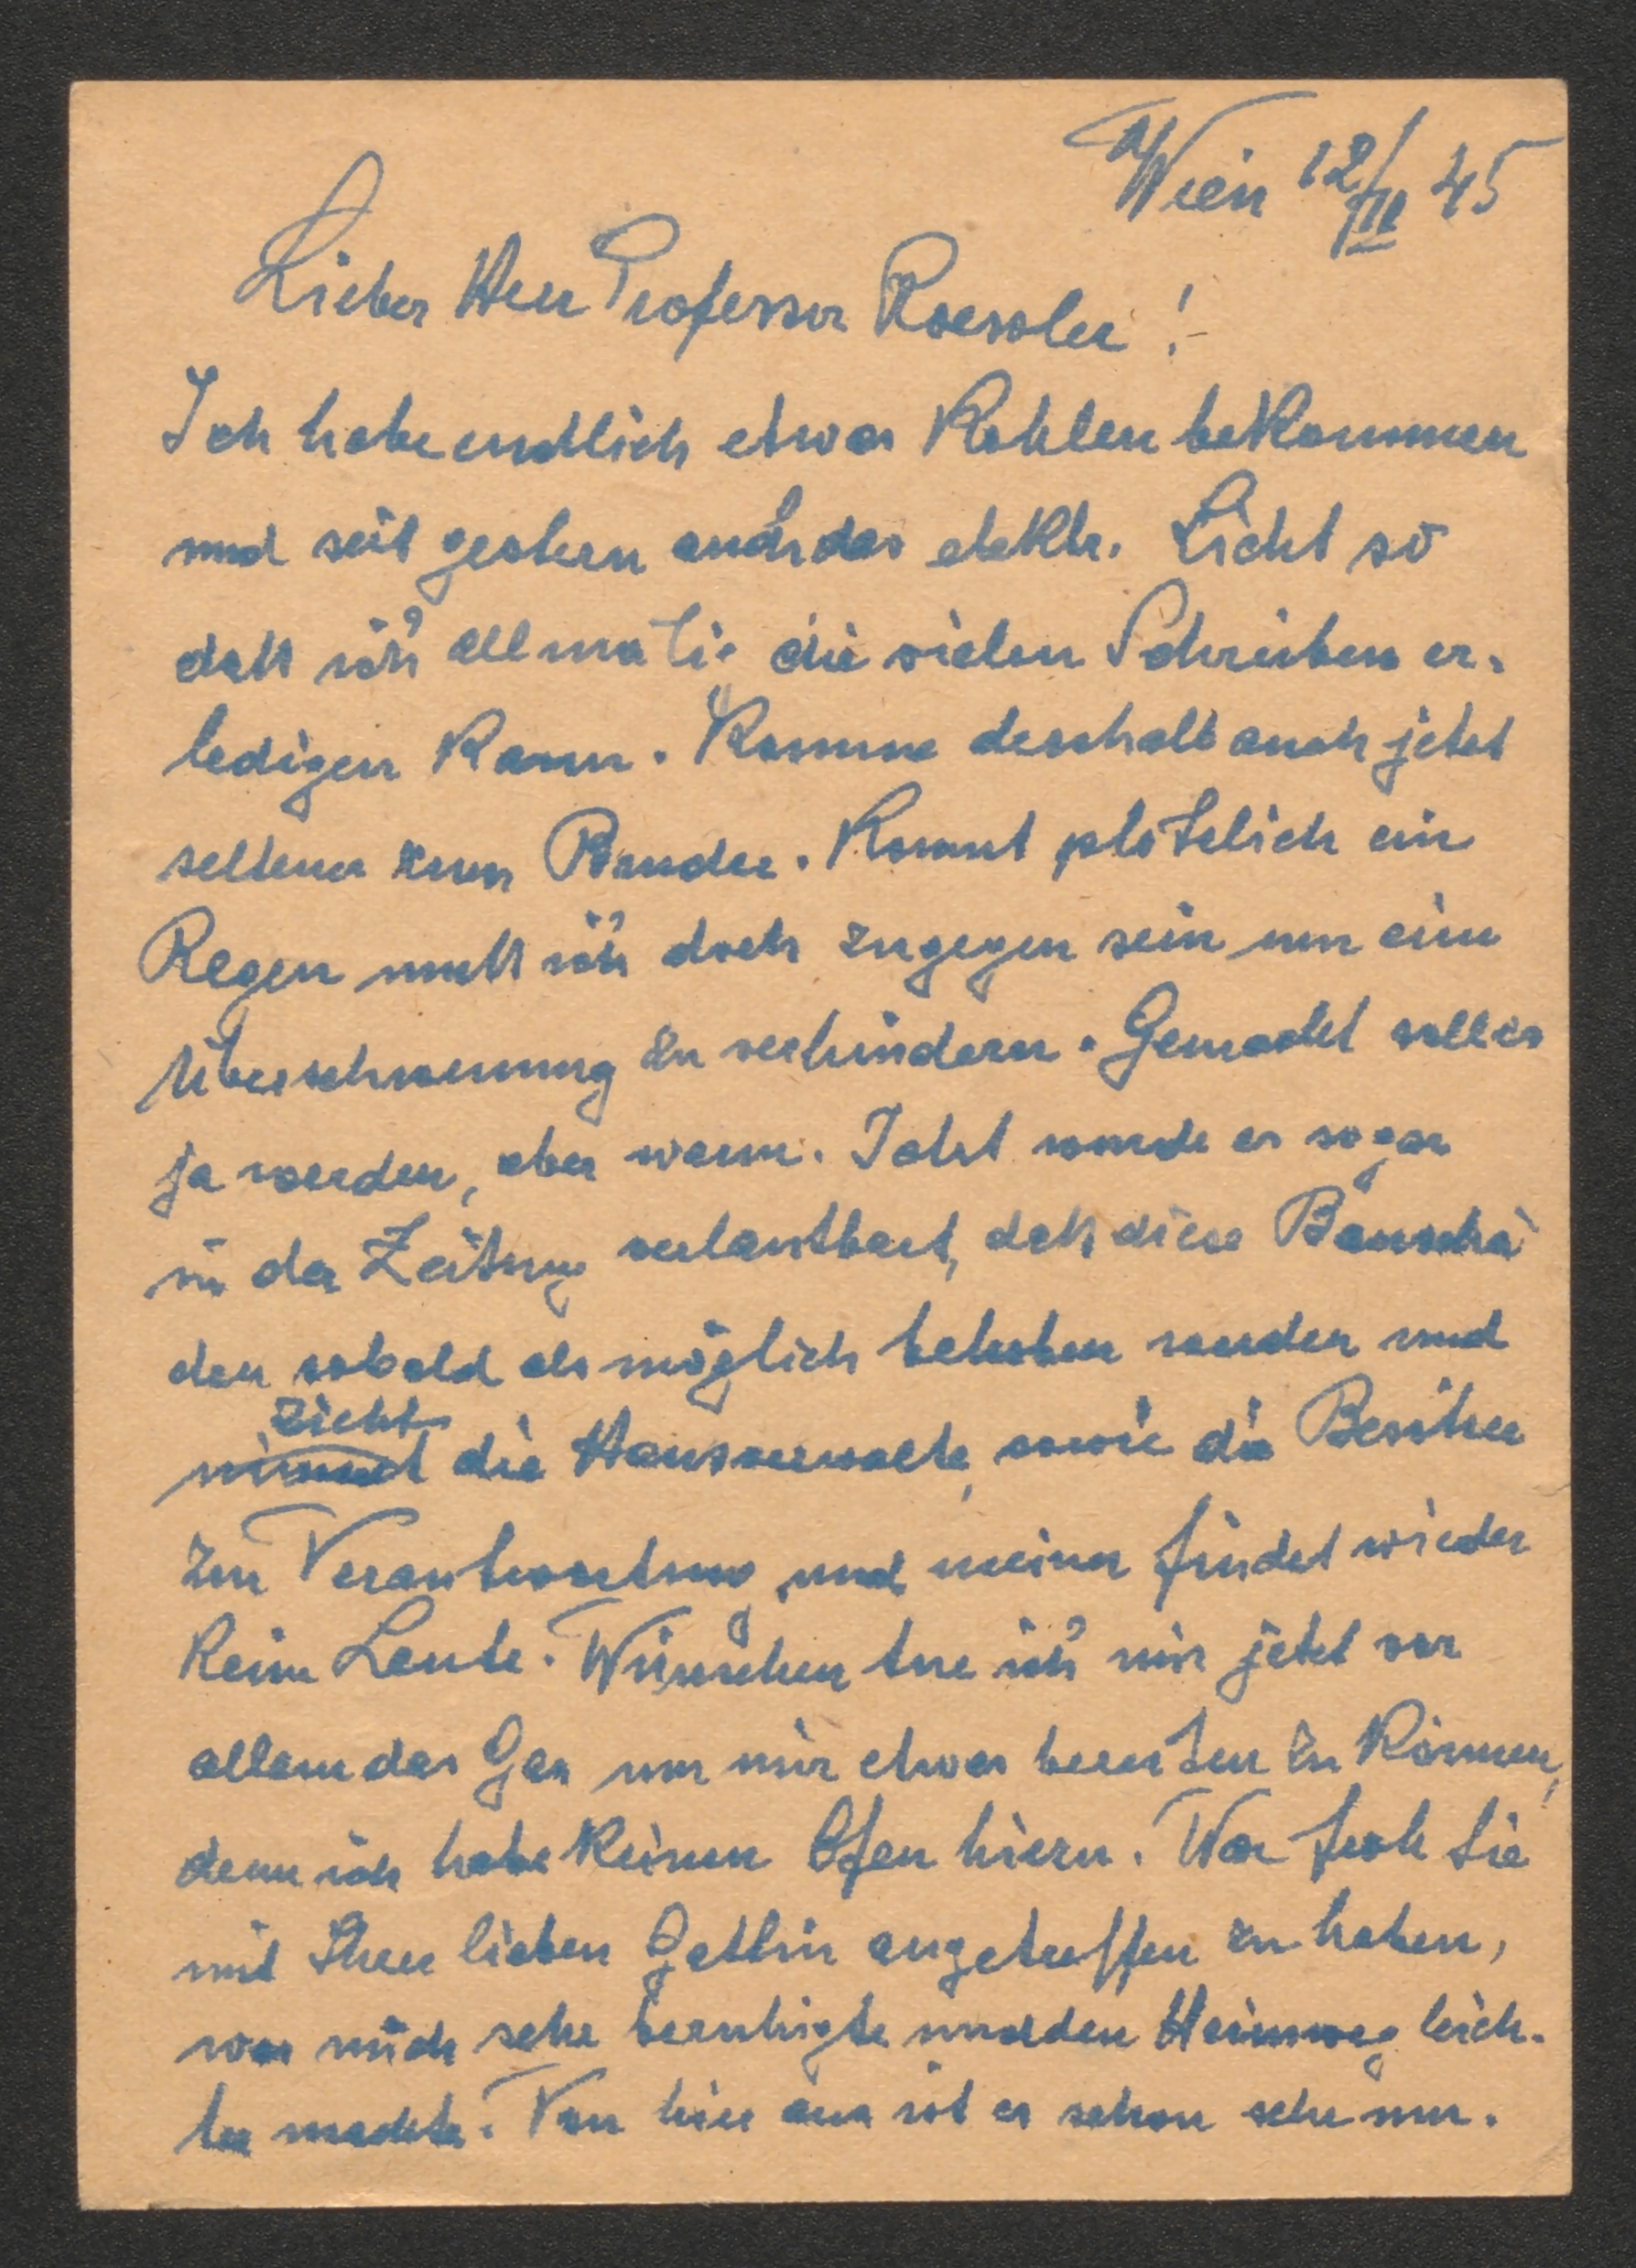 Wien 12/III 45
Lieber Herr Professor Roessler!
Ich habe endlich etwas Kohlen bekommen
und seit gestern auch das elektr. Licht so
daß ich allmälig die vielen Schreiben er-
ledigen kann. Komme deshalb auch jetzt
seltener zum Bruder. Kommt plötzlich ein
Regen muß ich doch zugegen sein um eine
Überschwemung zu verhindern. Gemacht soll es
ja werden, aber wann. Jetzt wurde es sogar
in der Zeitung verlautbart, daß diese Bauschä
den sobald als möglich behoben werden und
zieht
nimmt die Hausverwalte, sowie die Besitzer
zur Verantwortung und meiner findet wieder
keine Leute. Wünschen tue ich mir jetzt vor
allem das Gas um mir etwas bereiten zu können,
denn ich habe keinen Ofen hierzu. War froh Sie
mit Ihrer lieben Gattin angetroffen zu haben,
was mich sehr beruhigte und den Heimweg leich-
ter machte. Von hier aus ist es schon sehr um-